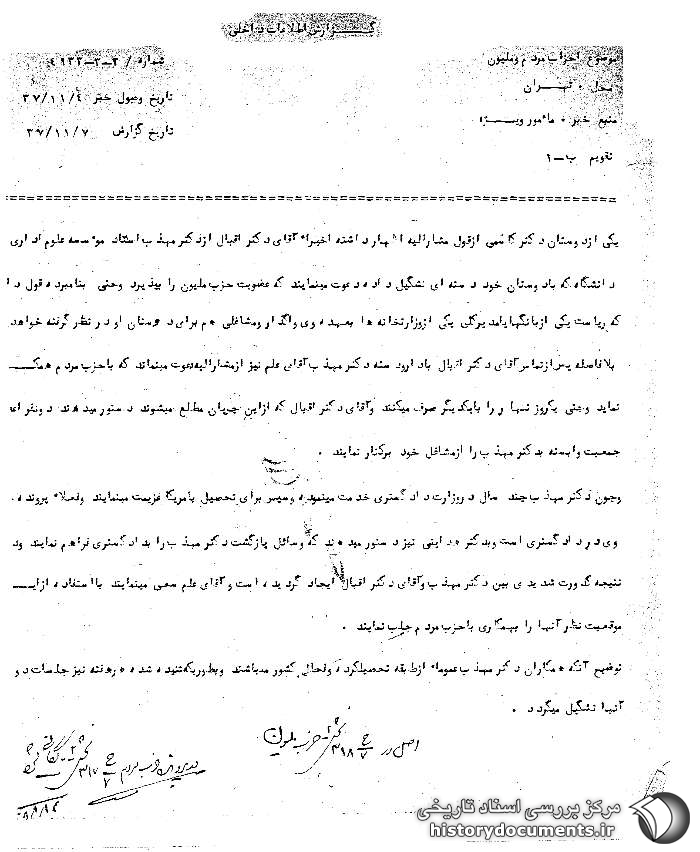 گزارش اطلاعات داخلی
موضوع احزاب مردم و ملیون
شماره / ۳-۳-۴۹۳۳
محل ۰ تهران
تاریخ وصول خبر ۳۷/۱۱/۴
منبع خبر ۰ مامور ویژه
تاریخ گزارش ۳۷/۱۱/۷
تقویم ب-۱
یکی از دوستان دکتر کاظمی از قول مشارالیه اظهار داشته اخیرا" آقای دکتر اقبال از دکتر مهذب استاد موسسه علوم اداری
دانشگاه که با دوستان خود دسته ای تشکیل داده دعوت مینمایند که عضویت حزب ملیون را بپذیرد وحتی بنامبرده قول دا
که ریاست یکی از بانکها یا مدیرکلی یکی از وزارتخانه ها بعهده وی واگذار و مشاغلی هم برای دوستان او در نظر گرفته خواهد
بلافاصله پس از تماس آقای دکتر اقبال با دارودسته دکتر مهذب آقای علم نیز از مشارالیه دعوت مینماید که با حزب مردم همک
نماید وحتی یکروز نهار را با یکدیگر صرف میکنند وآقای دکتر اقبال که از این جریان مطلع میشوند دستور میدهند دونفر ا
جمعیت وابسته بدکتر مهذب را از مشاغل خود برکنار نمایند ۰
وچون دکتر مهذب چند سال در وزارت دادگستری خدمت مینموده وسپس برای تحصیل بامریکا عزیمت مینمایند وفعلا" پرونده
وی در دادگستری است وبدکتر هدایتی نیز دستور میدهند که وسائل بازگشت دکتر مهذب را بدادگستری فراهم نمایند ود
نتیجه کدورت شدیدی بین دکتر مهذب وآقای دکتر اقبال ایجاد گردیده است وآقای علم سعی مینمایند با استفاده از ایـ
موقعیت نظر آنها را بهمکاری با حزب مردم جلب نمایند ۰
توضیح آنکه همکاران دکتر مهذب عموما" از طبقه تحصیلکرده وفعال کشور میباشند وبطوریکه شنیده شده هر هفته نیز جلسات دو
آنها تشکیل میگردد ۰
اصل در ۳۱۸ حزب ملیون
حزب مردم ۳۱۷
مرکز بررسی اسناد تاریخی
historydocuments.ir